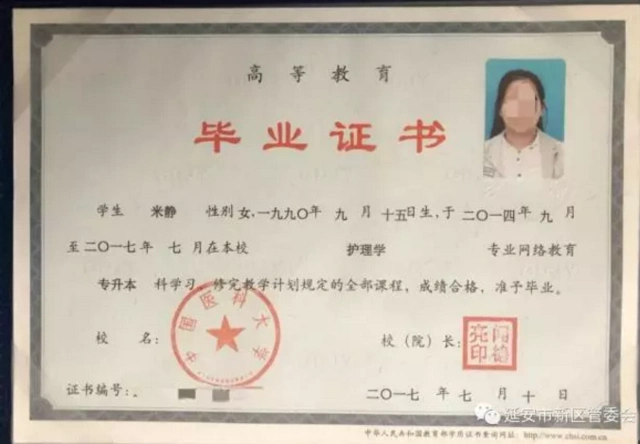 高等教育
毕业证书
学生 米静 性别 女,一九九〇年 九 月 十五日生,于 二〇一四年 九 月
至二〇一七年 七 月在本校 护理学 专业网络教育
专升本 科学习,修完教学计划规定的全部课程,成绩合格,准予毕业。
校 名:
中国医科大学
校(院)长:
闻德亮印
证书编号:
二〇一七年 七 月 十 日
中华人民共和国教育部学历证书查询网址:http://www.chsi.com.cn
延安市新区管委会